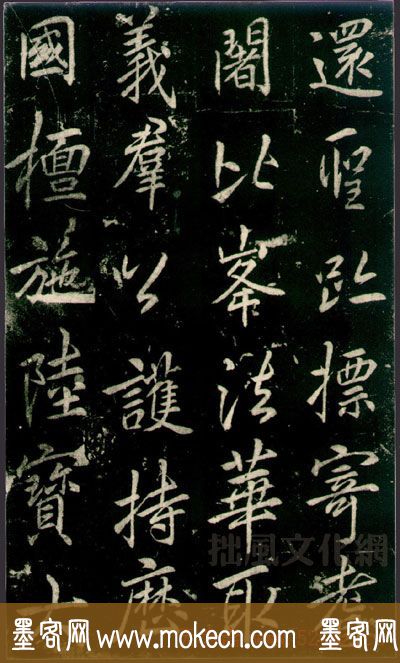 還聖趾摽寄耆
闍比峯法華取
義羣公護持歷
國檀施陸寶
拙風文化網
墨客网 www.mokecn.com 墨客网